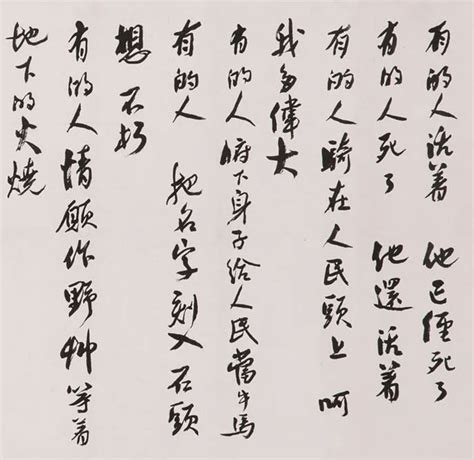 有的人活着 他已經死了
有的人死了 他還活着
有的人騎在人民頭上 呵
我多偉大
有的人俯下身子給人民當牛馬
有的人 把名字刻入石頭
想 不朽
有的人情願作野艸等着
地下的火燒